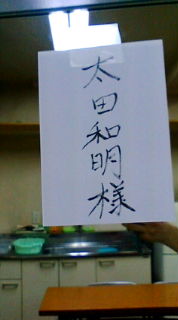 太田和明様